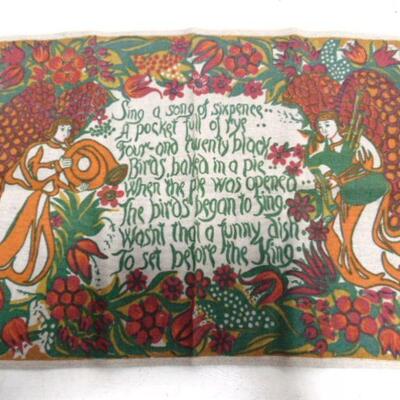 Sing a song of sixpence..
A pocket full of rye
Four and twenty black
Birds, baked in a pie...
When the pie was opened..
The birds began to sing..
Wasnt that a funny dish
To set before the King.